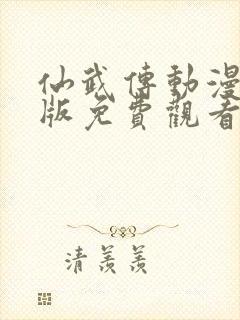 仙武傳動漫
版免費觀看
清羨羨